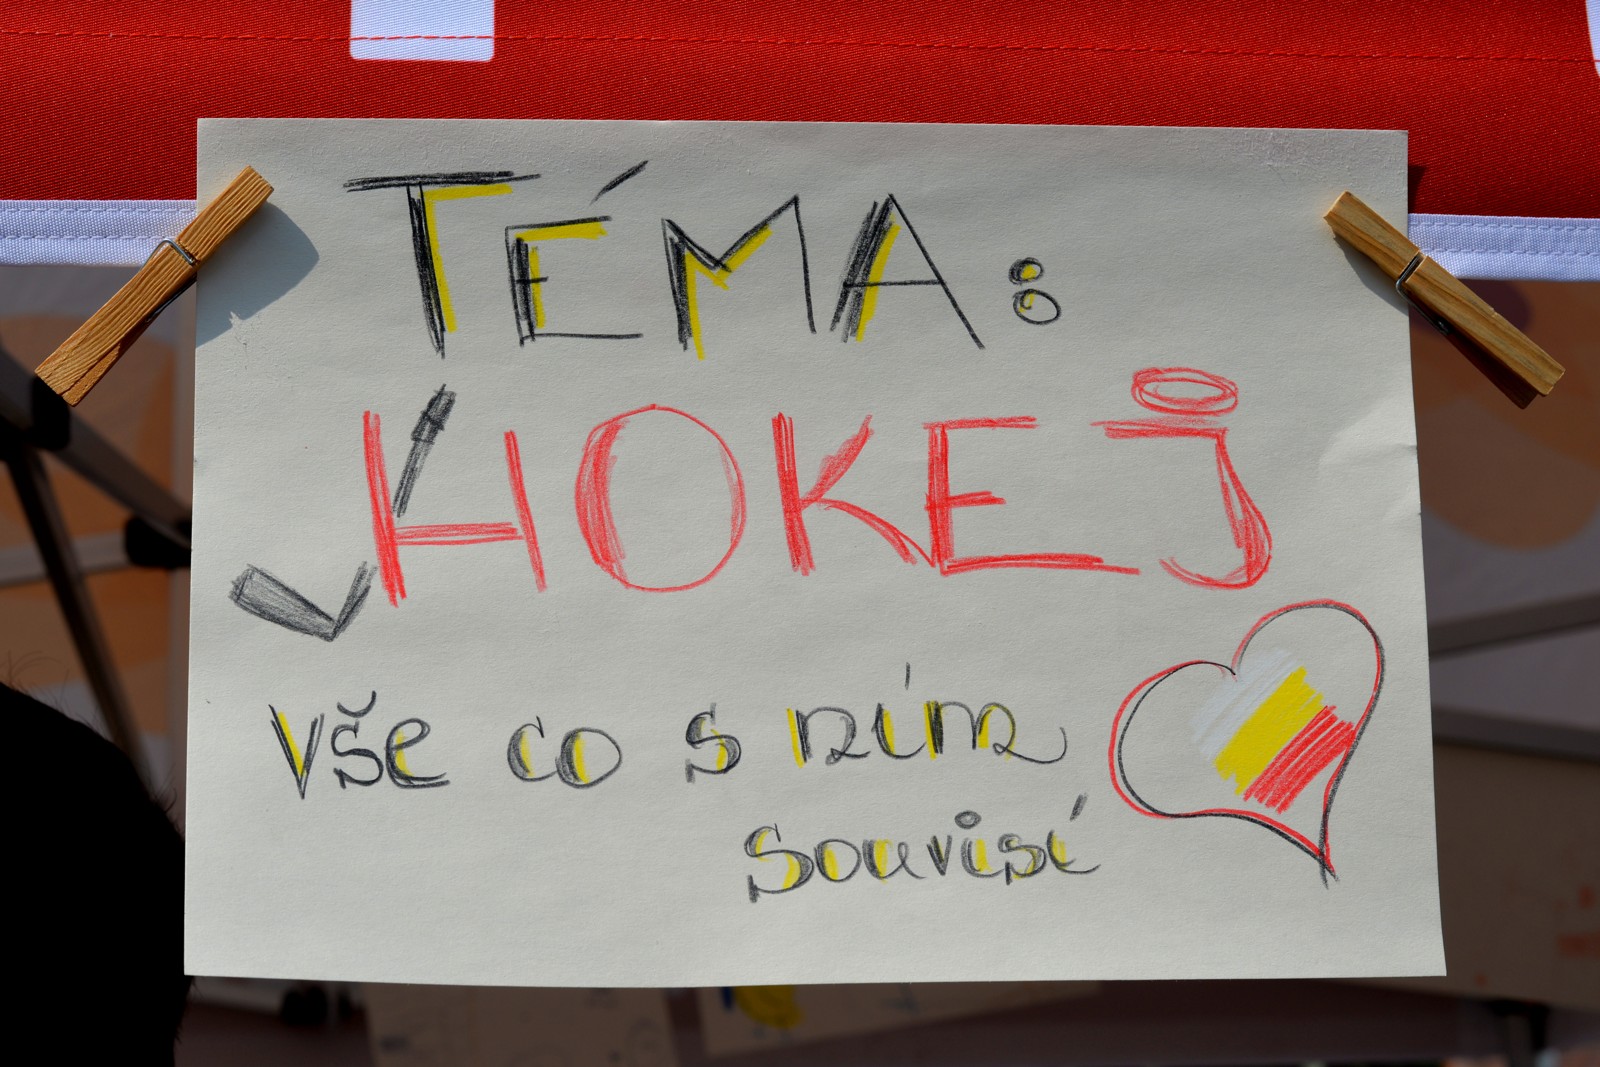 TÉMA:
HOKEJ
Vše co s ním
souvisí